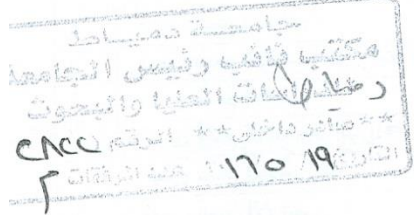 جامعة دمياط
مكتب نائب رئيس الجامعة
للدراسات العليا والبحوث
**صادر داخلى** الرقم ٢٨٢٢
التاريخ ١٩/٥/ عدد المرفقات